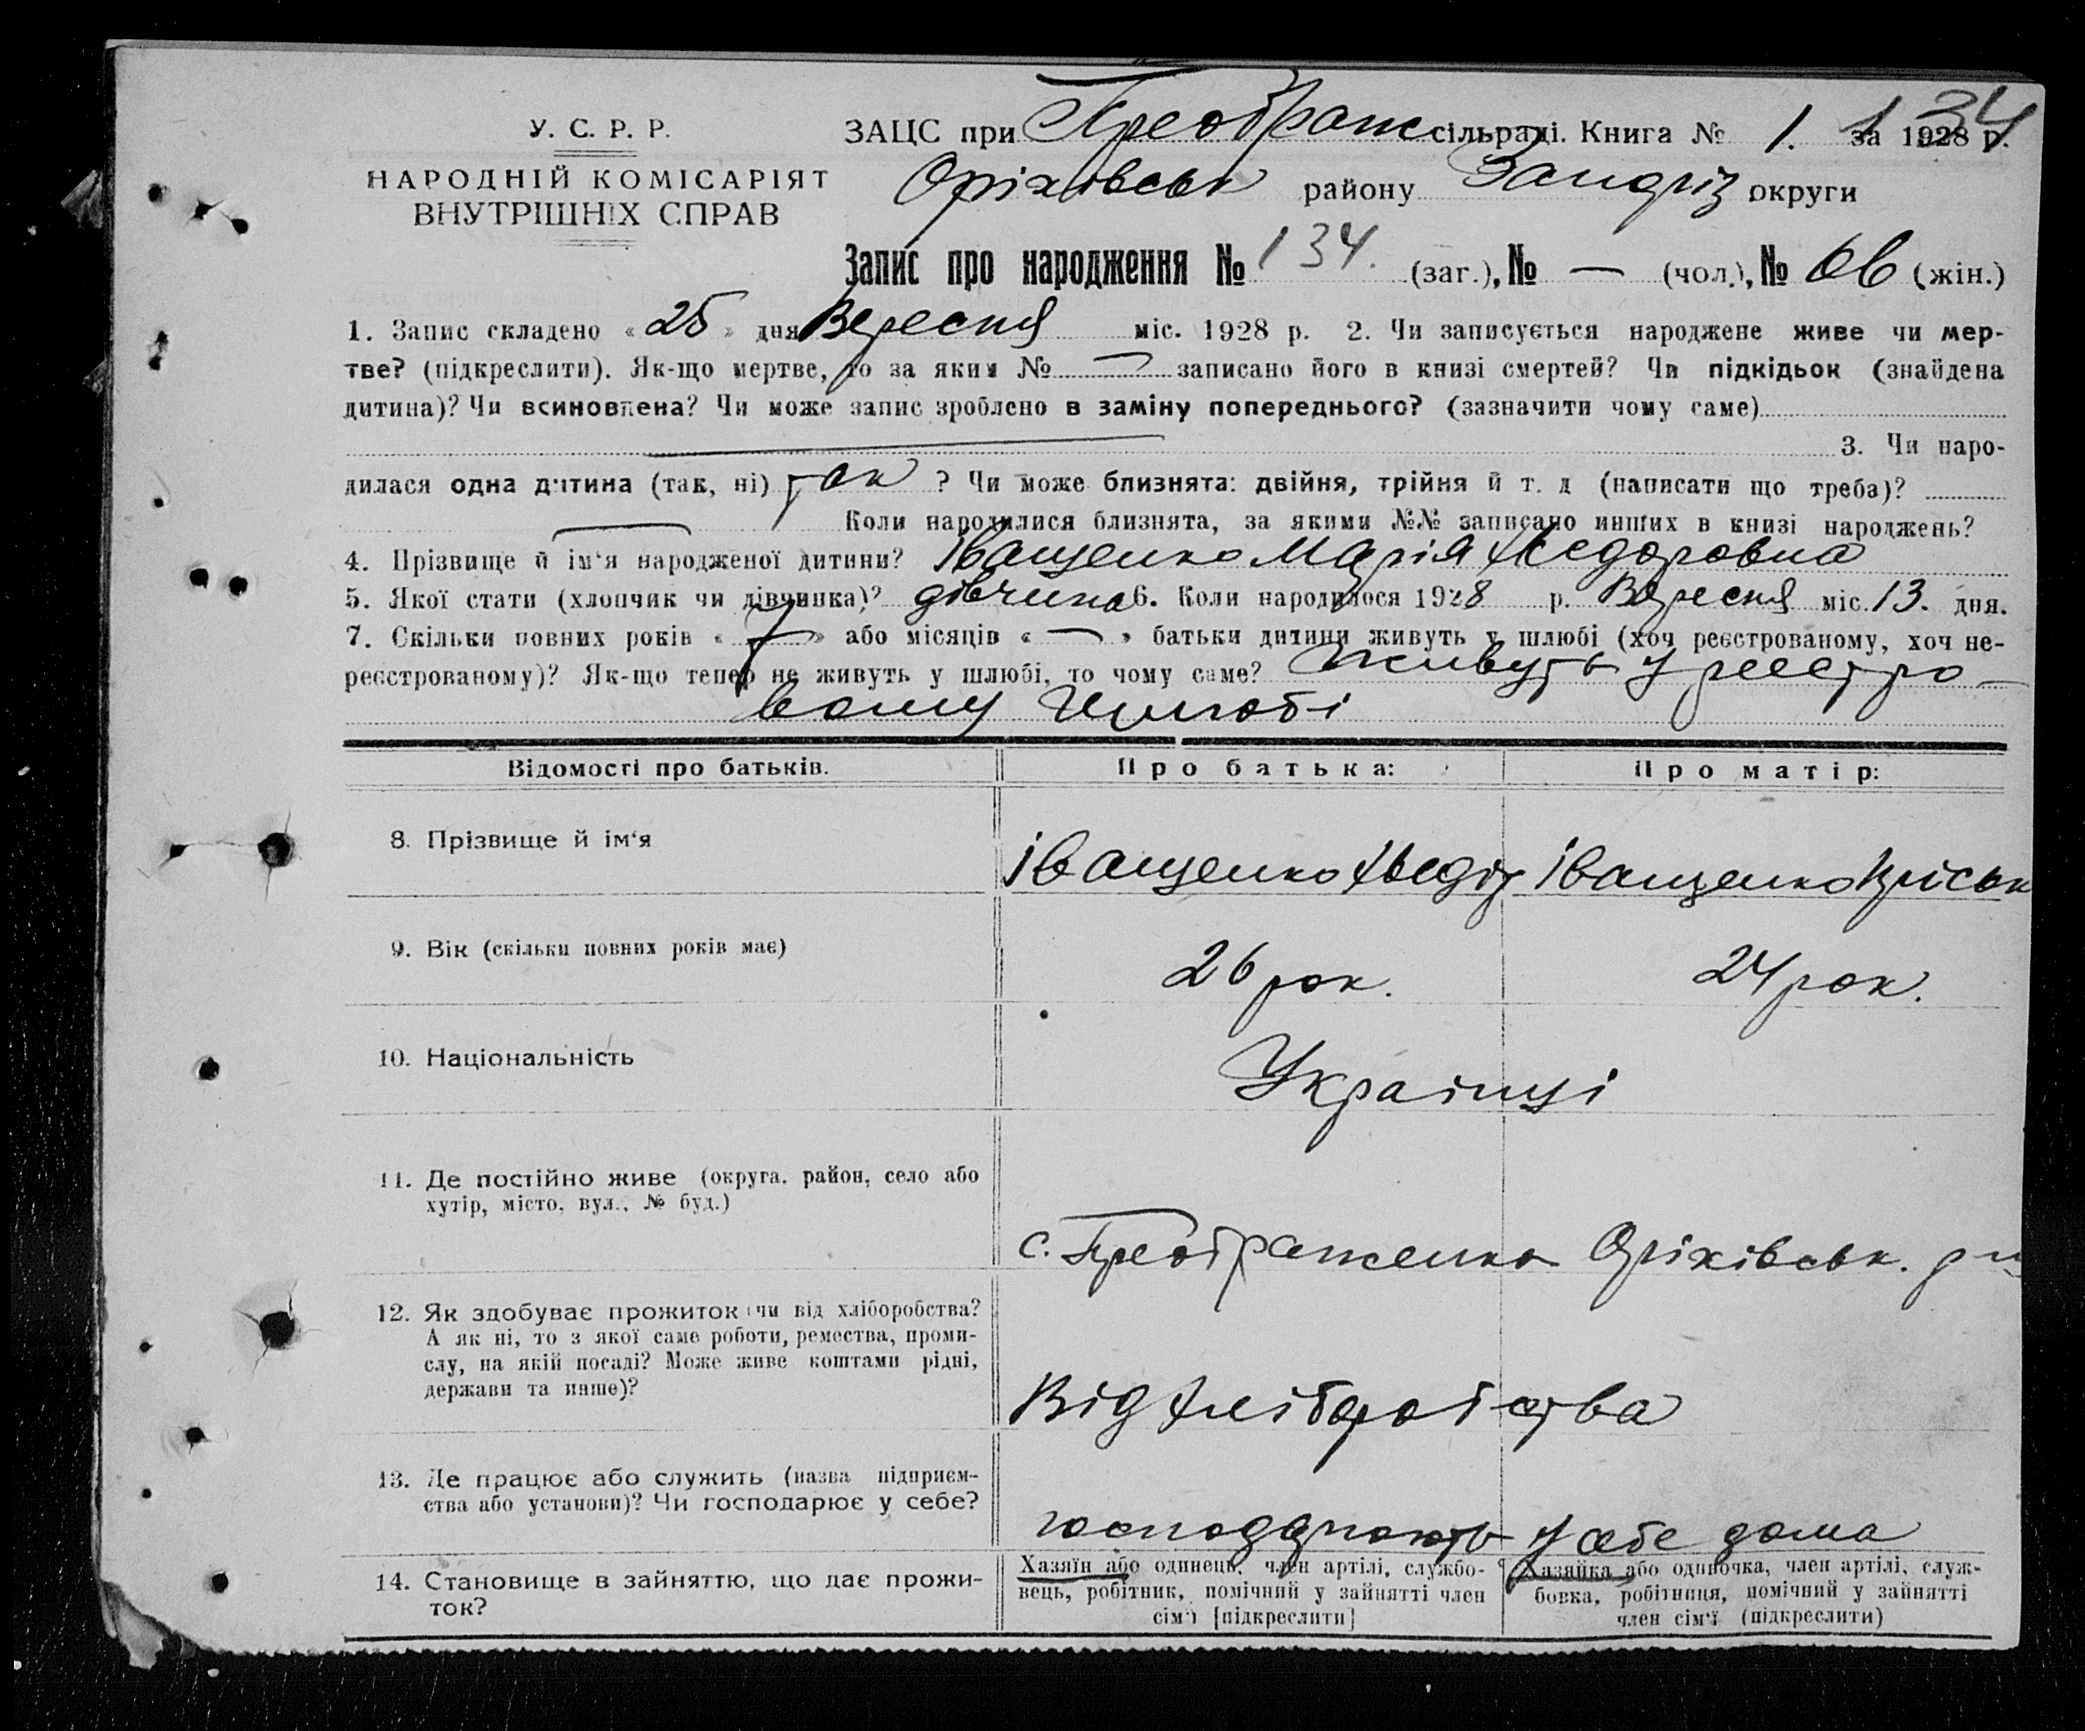 134
У. С. Р. Р.
НАРОДНІЙ КОМІСАРІЯТ
ВНУТРІШНІХ СПРАВ
ЗАЦС при Преображ сільраді. Книга № 1. за 1928 р.
Оріхівськ району Запоріз округи
Запис про народження № 134. (заг.), № — (чол.), № 66 (жін.)
1. Запис складено « 25 » дня Вересня міс. 1928 р. 2. Чи записується народжене живе чи мер-
тве? (підкреслити). Як-що мертве, то за яким № — записано його в книзі смертей? Чи підкідьок (знайдена
дитина)? Чи всиновлена? Чи може запис зроблено в заміну попереднього? (зазначити чому саме)
3. Чи наро-
дилася одна дитина (так, ні) так ? Чи може близнята: двійня, трійня й т. д (написати що треба)?
— Коли народилися близнята, за якими №№ записано инших в книзі народжень?
4. Прізвище й ім‘я народженої дитини? Іващенко Марія Хведоровна
5. Якої стати (хлопчик чи дівчинка)? дівчина 6. Коли народилося 1928 р. Вересня міс. 13. дня.
7. Скільки повних років « 7 » або місяців « — » батьки дитини живуть у шлюбі (хоч реєстрованому, хоч не-
реєстрованому)? Як-що тепер не живуть у шлюбі, то чому саме? живуть у реєстро-
вану шлюбі
Відомості про батьків. Про батька: Про матір:
8. Прізвище й ім‘я Іващенко Хведір Іващенко Пріськ
9. Вік (скільки повних років має) 26 рок. 24 рок.
10. Національність Українці
11. Де постійно живе (округа, район, село або
хутір, місто, вул., № буд.)
с. Преображенка Оріхівськ. р-н
12. Як здобуває прожиток (чи від хліборобства?
А як ні, то з якої саме роботи, ремества, проми-
слу, на якій посаді? Може живе коштами рідні,
держави та инше)?
Від хліборобства
13. Де працює або служить (назва підприєм-
ства або установи)? Чи господарює у себе?
господарюють у себе дома
14. Становище в зайняттю, що дає прожи-
ток?
Хазяїн або одинець, член артілі, службо-
вець, робітник, помічний у зайнятті член
сім‘ї [підкреслити]
Хазяйка або одиночка, член артілі, служ-
бовка, робітниця, помічний у зайнятті
член сім‘ї (підкреслити)